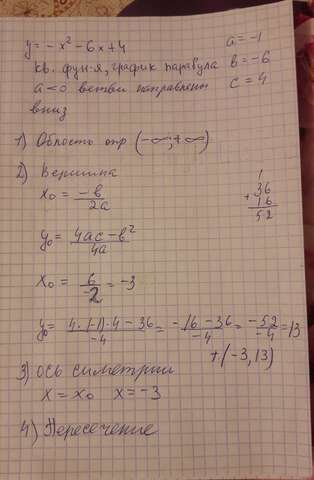 y = -x² - 6x + 4
a = -1
кв. фун-я, график парабула
в = -6
a < 0 ветви направлен
c = 4
вниз
1) Область опр (-∞; +∞)
2) Вершина
x₀ = -в/2a
1
36
+ 16
52
y₀ = 4ac - в²/4a
x₀ = 6/-2 = -3
y₀ = 4·(-1)·4 - 36/-4 = -16 - 36/-4 = -52/-4 = 13
т(-3, 13)
3) ось симетрии
x = x₀ x = -3
4) Пересечение